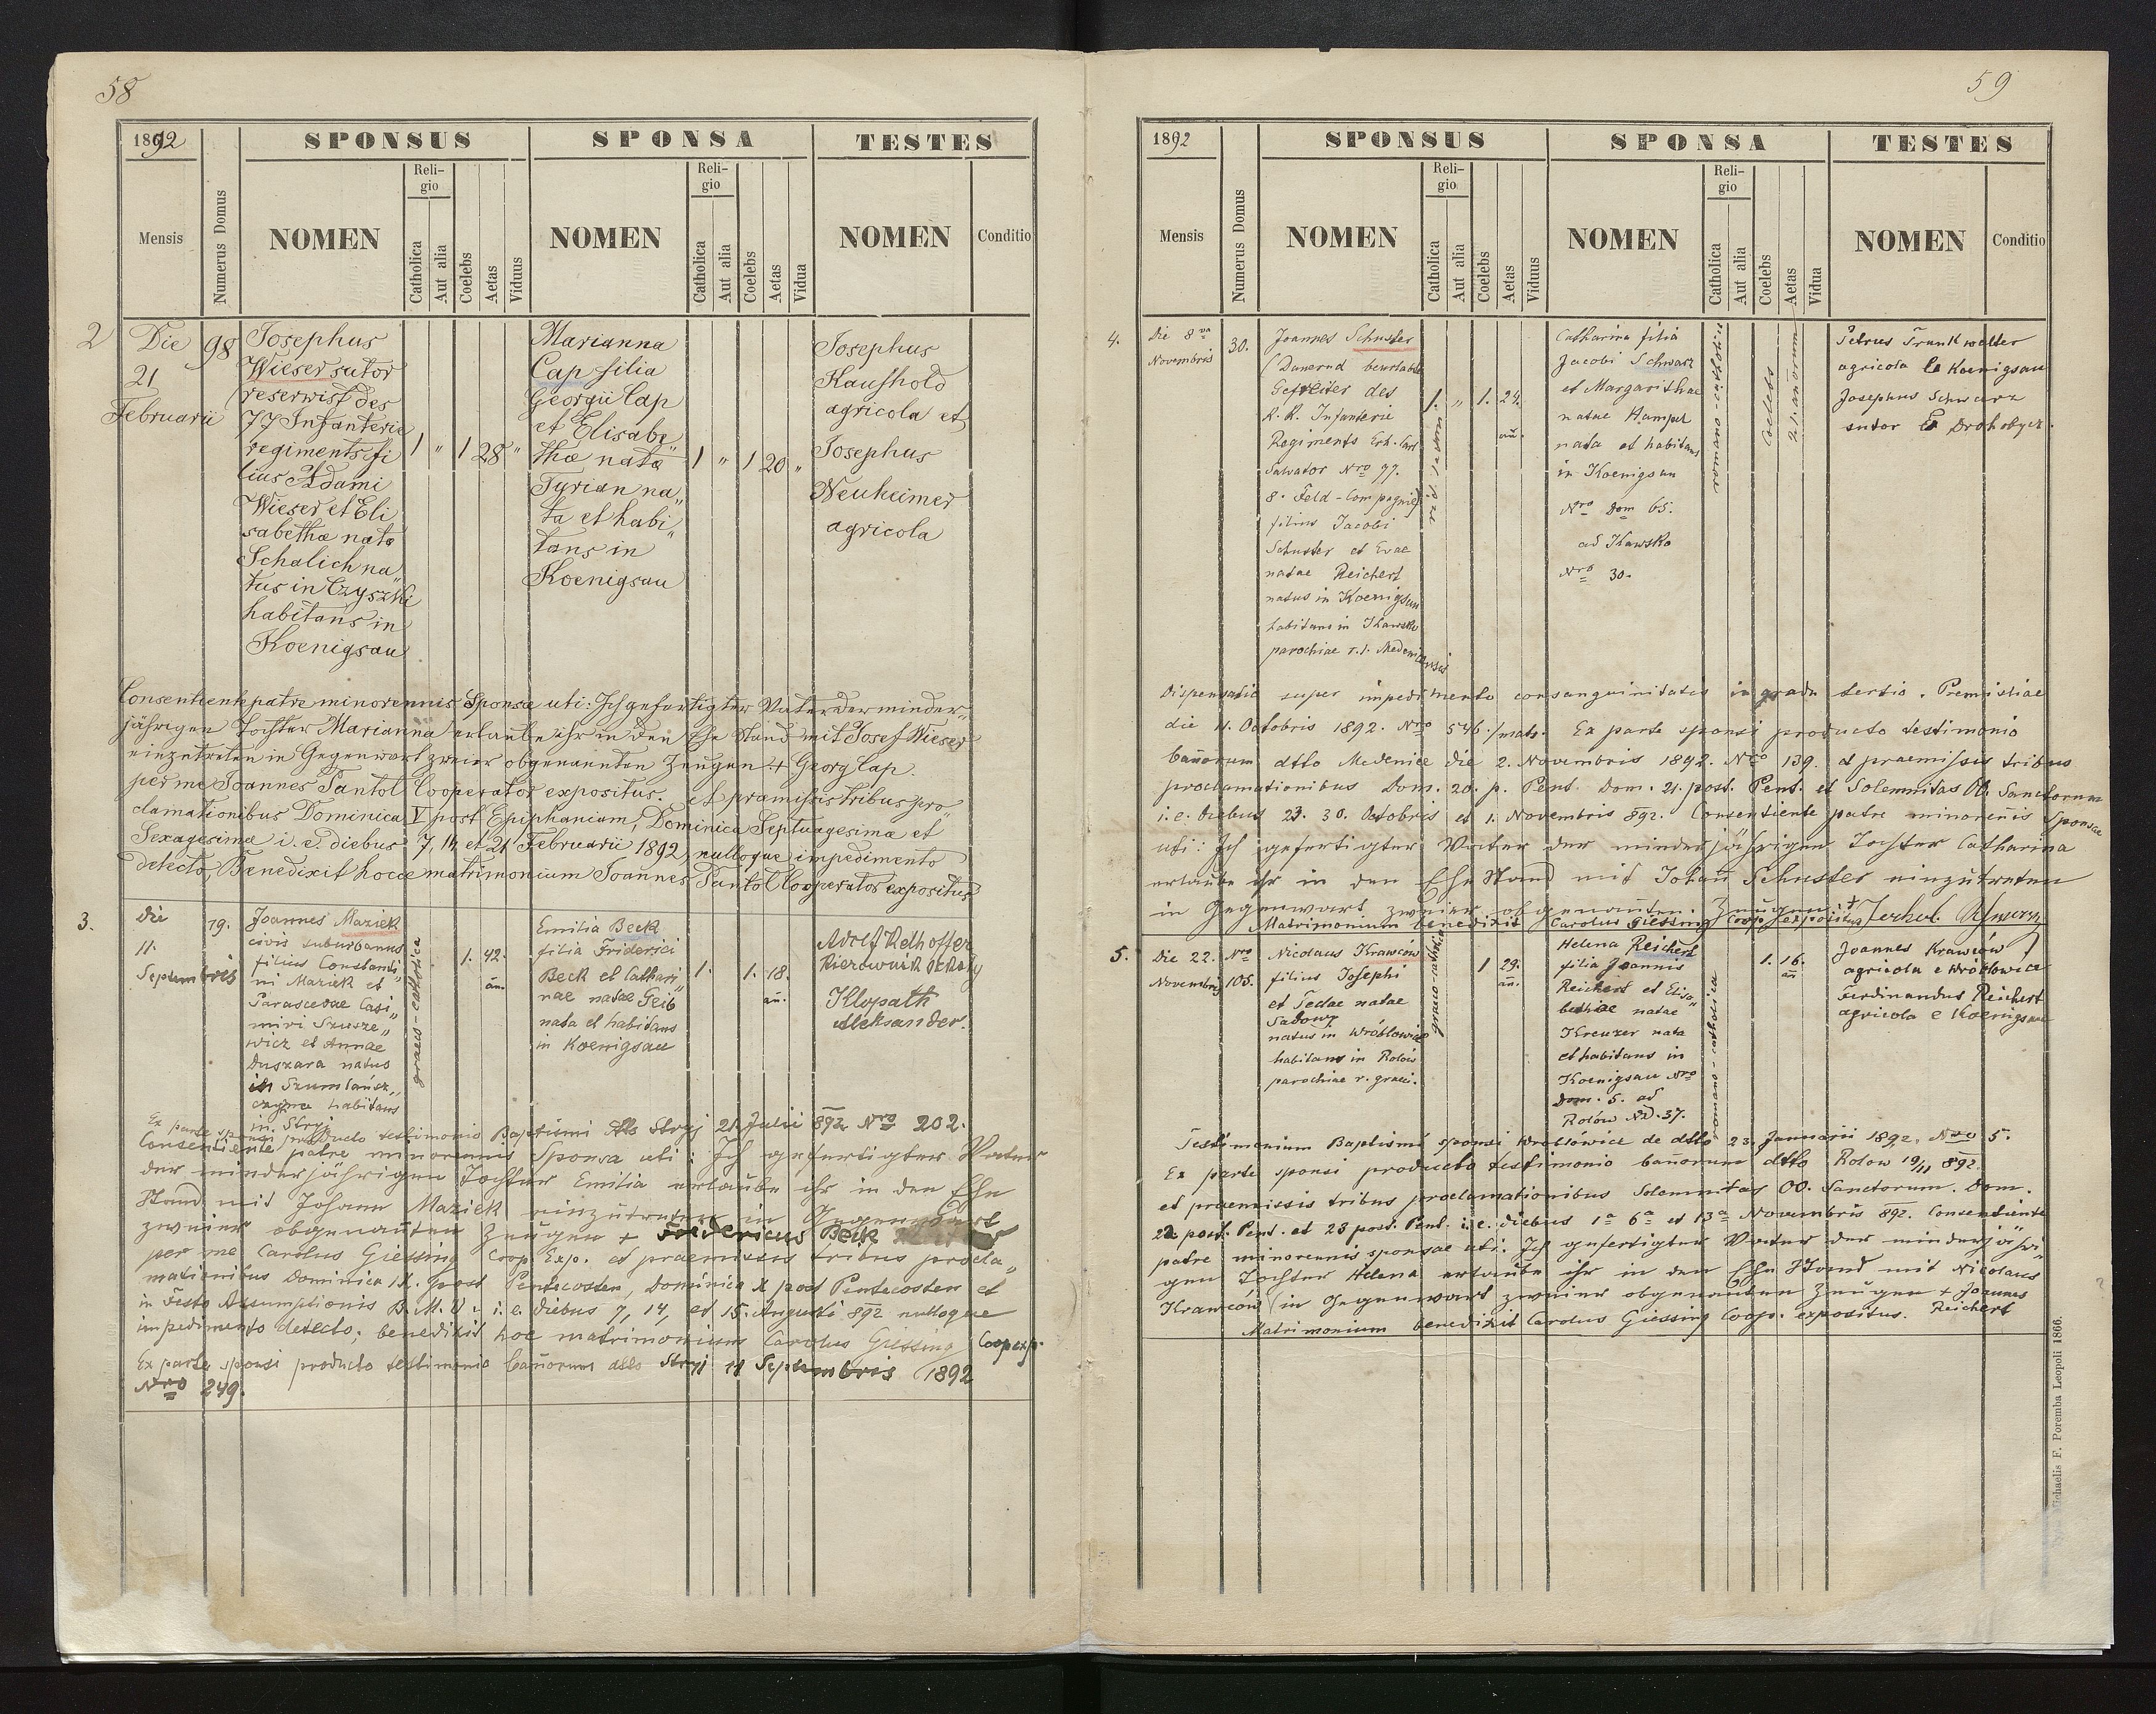 58
1892
SPONSUS
SPONSA
TESTES
Mensis
Numerus Domus
NOMEN
Religio
Catholica
Aut alia
Coelebs
Aetas
Viduus
NOMEN
Religio
Catholica
Aut alia
Coelebs
Aetas
Vidua
NOMEN
Conditio
2
Die
21
Februarii
98
Josephus
Wieser sutor
reserwist des
77 Infanterie
regiments fi
lius Adami
Wieser et Eli
sabethæ nata
Schalich na
tus in Czyszki
habitans in
Koenigsau
1 " 1 28 "
Marianna
Cap filia
Georgii Cap
et Elisabe
thæ nata
Tyrian na
ta et habi
tans in
Koenigsau
1 " 1 20 "
Josephus
Kaufhold
agricola et
Josephus
Neuheimer
agricola
Consentiente patre minorennis Sponsæ uti: Ich gefertigter Vater der minder
jährigen Tochter Marianna erlaube ihr in den Ehe Stand mit Josef Wieser
einzutreten in Gegenwart zweier obgenannten Zeugen + Georg Cap.
per me Joannes Santol Cooperator expositus. et præmissis tribus pro
clamationibus Dominica V post Epiphaniam, Dominica Septuagesimæ et
Sexagesimæ i. e. diebus 7, 14 et 21 Februarii 1892, nulloque impedimento
detecto, Benedixit hocce matrimonium Joannes Santol Cooperator expositus
3.
Die
11.
Septembris
79.
Joannes Maziek
civis suburbanus
filius Constanti
ni Maziek et
Parascevae Casi
miri Szusze
wicz et Annae
Duszara natus
in Szumlańsz
czyzna habitans
in Stryj
graeco-catholica
1. 42. añ.
Emilia Beck
filia Friderici
Beck et Cathari
nae natae Geib
nata et habitans
in Koenigsau
1. 1. 18. añ.
Adolf Relhoffer
Kierownik szkoły
Kłopath
Aleksander.
Ex parte sponsi producto testimonio Baptismi dtto Stryj 21 Julii 892 Nro 202.
Consentiente patre minorennis Sponsa uti: Ich gefertigter Vater
der minderjährigen Tochter Emilia erlaube ihr in den Ehe
Stand mit Johann Maziek einzutreten in Gegenwart
zweier obgenañten Zeugen + Fridericus Beck
per me Carolus Giessing Coop. Exp. et praemissis tribus procla
mationibus Dominica IX. post Pentecosten, Dominica X post Pentecosten et
in Festo Assumptionis B. M. V. i. e. diebus 7, 14, et 15. Augusti 892 nulloque
impedimento detecto, benedixit hoc matrimonium Carolus Giessing Coop exp.
Ex parte sponsi producto testimonio bañorum dtto Stryj 11 Septembris 1892
Nro 249.
59
1892
SPONSUS
SPONSA
TESTES
Mensis
Numerus Domus
NOMEN
Religio
Catholica
Aut alia
Coelebs
Aetas
Viduus
NOMEN
Religio
Catholica
Aut alia
Coelebs
Aetas
Vidua
NOMEN
Conditio
4.
Die 8va
Novembris
30.
Joannes Schuster
(Dauernd beurlaubter
Gefreiter des
k. k. Infanterie
Regiments Erh. Carl
Salvator Nro 77.
8. Feld-Compagnie)
filius Jacobi
Schuster et Evae
natae Reichert
natus in Koenigsau
habitans in Ilawsko
parochiae r. l. Medenicensis
1. " 1. 24. añ.
Catharina filia
Jacobi Schwarz
et Margarithae
natae Hampel
nata et habitans
in Koenigsau
Nro Dom 65.
ad Ilawsko
Nro 30.
romano-catholica
Coelebs
21. añorum
Petrus Trunkwalter
agricola e Koenigsau
Josephus Schwarz
sutor e Drohobycz.
Dispensatio super impedimento consanguinitatis in gradu tertio. Premisliae
die 11. Octobris 1892. Nro 546./mats. Ex parte sponsi producto testimonio
bañorum dtto Medenice die 2. Novembris 1892. Nro 139. et praemissis tribus
proclamationibus Dom. 20. p. Pent. Dom. 21. post. Pent. et Solemnitas OO. Sanctorum
i. e. diebus 23. 30. Octobris et 1. Novembris 892. Consentiente patre minorenis sponsae
uti: Ich gefertigter Vater der minderjährigen Tochter Catharina
erlaube ihr in den Ehe Stand mit Johañ Schuster einzutreten
in Gegenwart zweier obgenañten Zeugen +
Matrimonium benedixit Carolus Giessing Coop. expositus
5.
Die 22.
Novembris
Nro
105.
Nicolaus Krawców
filius Josephi
et Tedae natae
Sadowy
natus in Wróblowice
habitans in Rolów
parochiae r. graeci.
graeco-catholica
1 29. añ.
Helena Reichert
filia Joannis
Reichert et Elisa
bethae natae
Kreuzer nata
et habitans in
Koenigsau Nro
Dom. 5. ad
Rolów ND. 37.
romano-catholica
1. 16. añ
Joannes Krawców
agricola e Wróblowice
Ferdinandus Reichert
agricola e Koenigsau
Testimonium Baptismi sponsi Wróblówice de dtto 23 Januarii 1892, Nro 5.
Ex parte sponsi producto testimonio bañorum dtto Rolow 19/11 892
et praemissis tribus proclamationibus Solemnitas OO. Sanctorum. Dom.
22 post. Pent. et 23 post. Pent. i. e. diebus 1a 6a et 13a Novembris 892. Consentiente
patre minorennis sponsae uti: Ich gefertigter Vater der minderjähri
gen Tochter Helena erlaube ihr in den Ehe Stand mit Nicolaus
Krawców in Gegenwart zweier obgenañten Zeugen + Joannes
Reichert
Matrimonium benedixit Carolus Giessing Coop. expositus.
Michaelis F. Poremba Leopoli 1866.